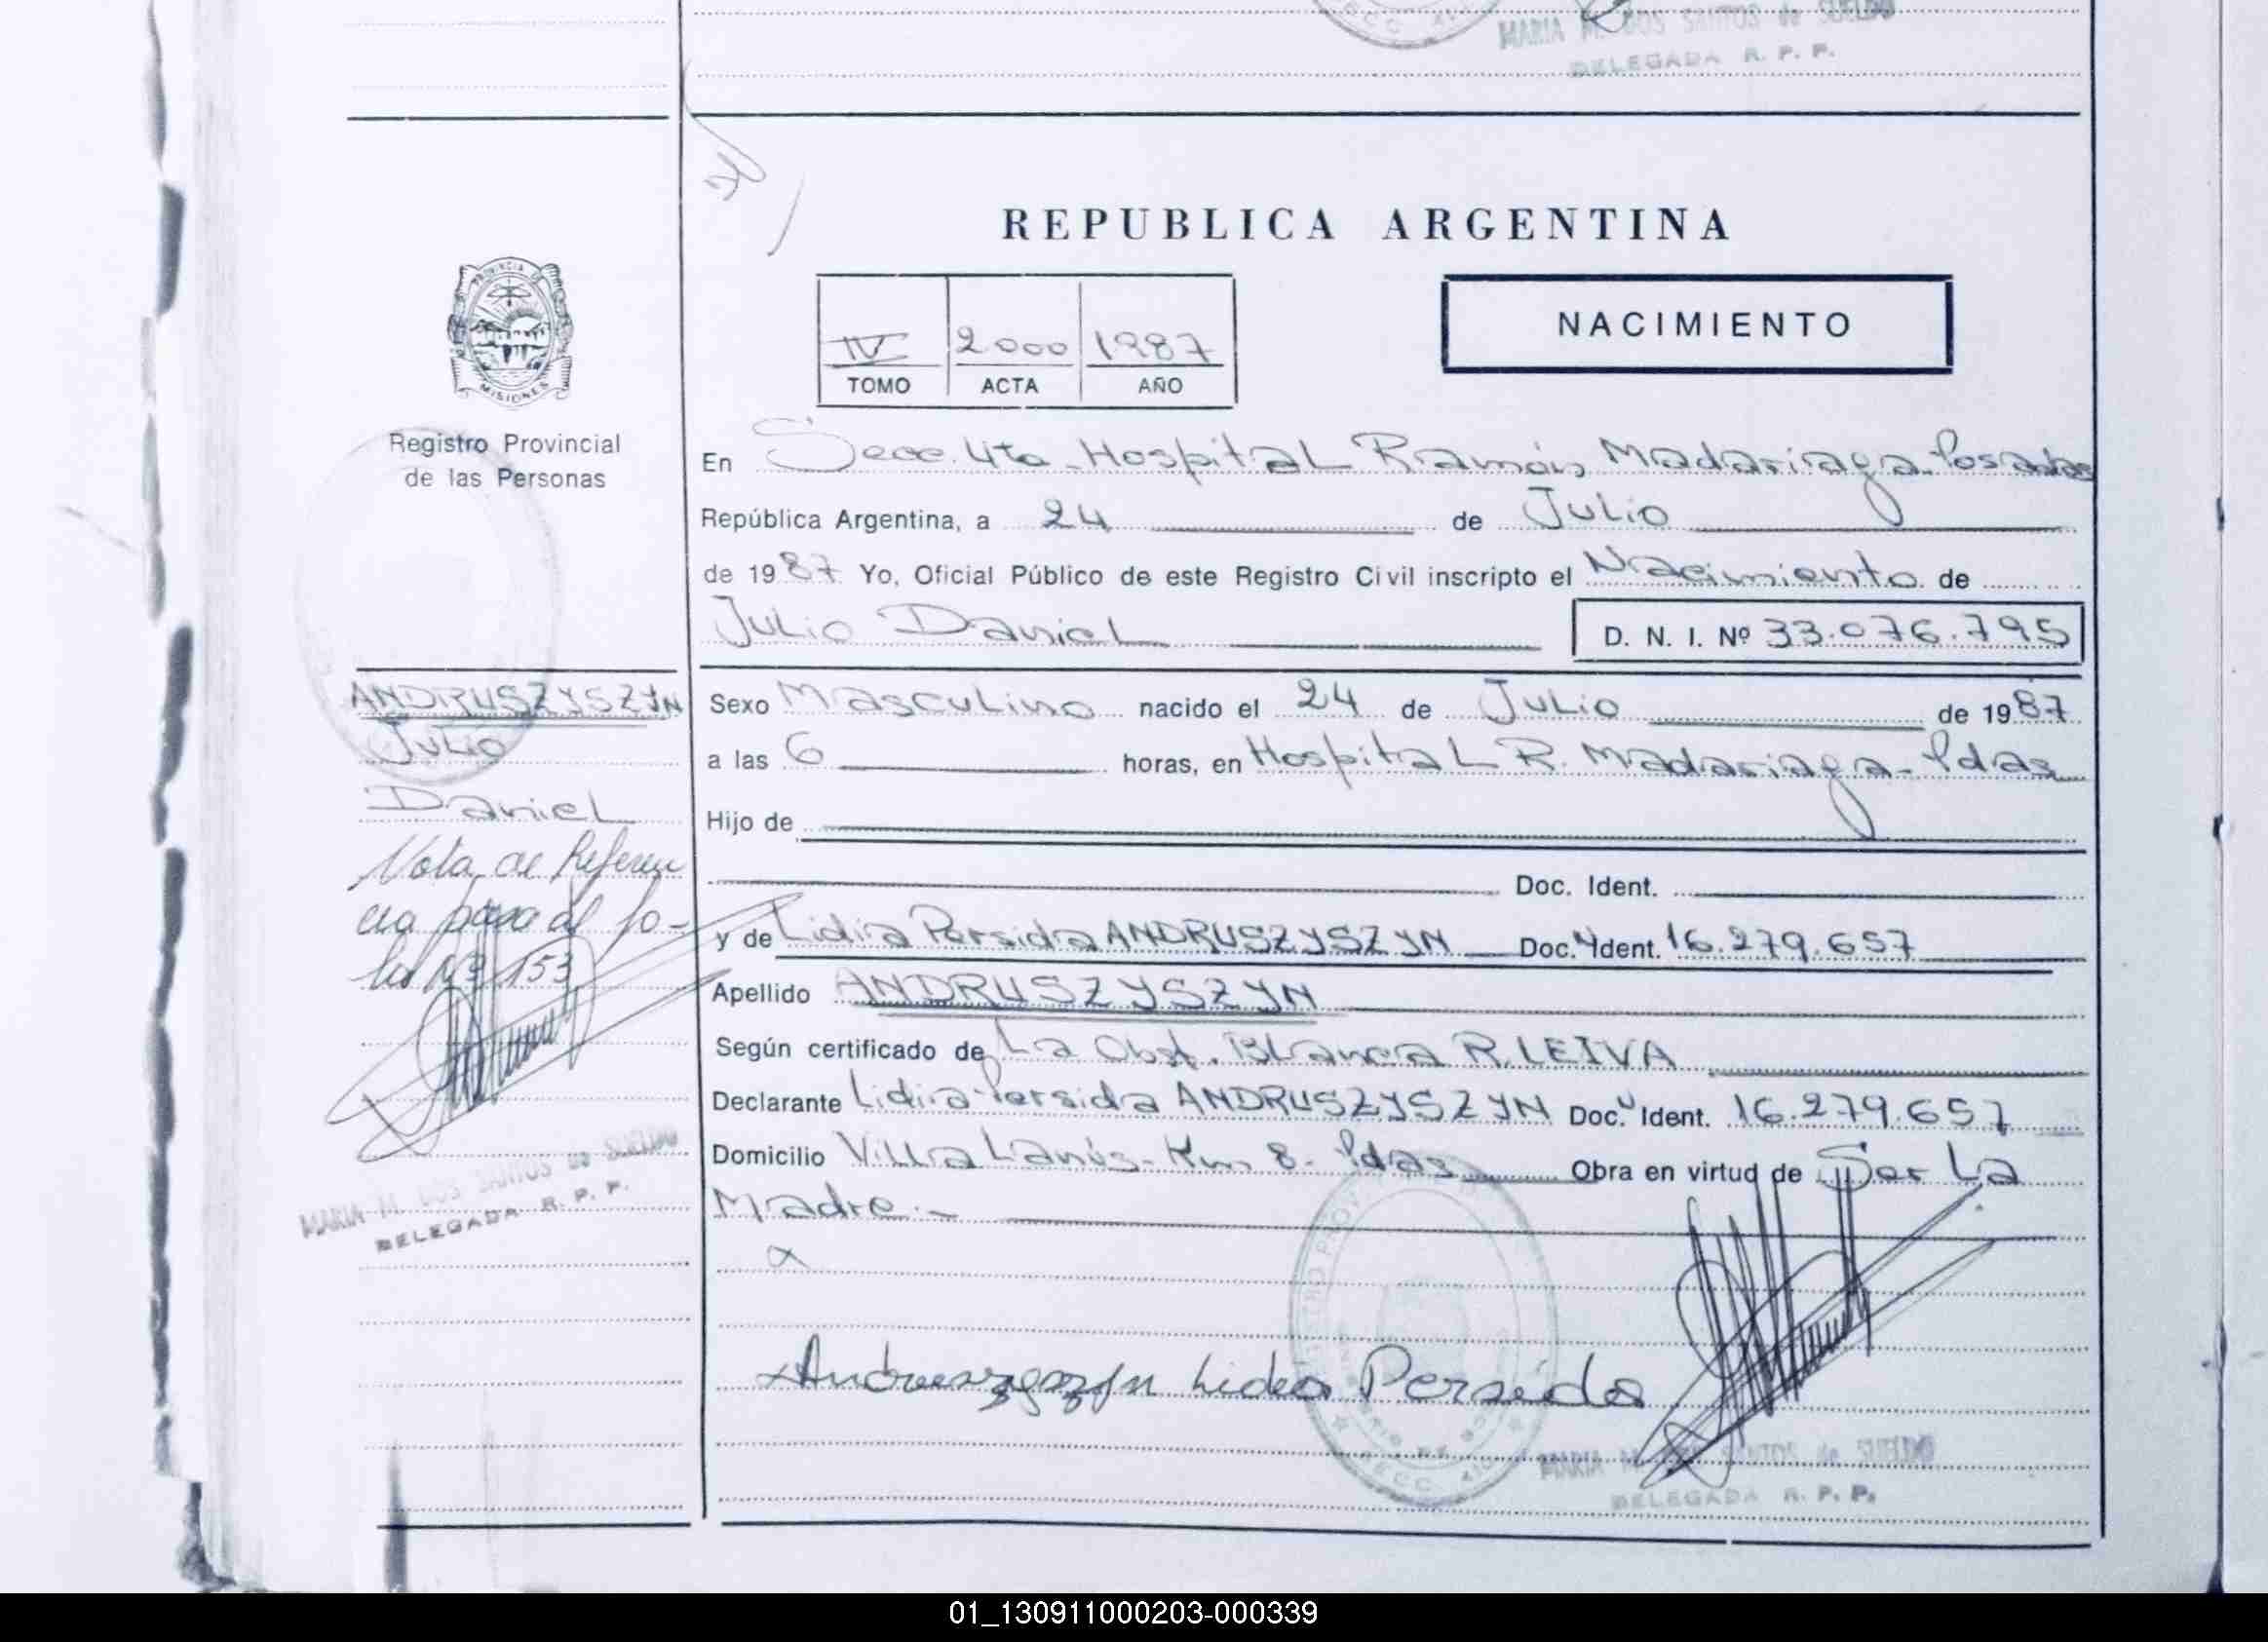 MARIA M. DOS SANTOS de SUELDO
DELEGADA R. P. P.
REPUBLICA ARGENTINA
NACIMIENTO
IV 2000 1987
TOMO ACTA AÑO
PROVINCIA DE
MISIONES
Registro Provincial
de las Personas
ANDRUSZYSZYN
Julio
Daniel
Nota de Referen
cia pasa al fo-
lio Nº 153
MARIA M. DOS SANTOS de SUELDO
DELEGADA R. P. P.
En Secc. 4ta - Hospital Ramón Madariaga - Posadas
República Argentina, a 24 de Julio
de 1987 Yo, Oficial Público de este Registro Civil inscripto el Nacimiento de
Julio Daniel D. N. I. Nº 33.076.795
Sexo Masculino nacido el 24 de Julio de 1987
a las 6 horas, en Hospital R. Madariaga - Pdas
Hijo de
Doc. Ident.
y de Lidia Persida ANDRUSZYSZYN Doc. Ident. 16.279.657
Apellido ANDRUSZYSZYN
Según certificado de La Obst. Blanca R. LEIVA
Declarante Lidia Persida ANDRUSZYSZYN Doc. Ident. 16.279.657
Domicilio Villa Lanús - Km 8 - Pdas Obra en virtud de Ser La
Madre.-
Andruszyszyn Lidia Persida
MARIA M. DOS SANTOS de SUELDO
DELEGADA R. P. P.
01_130911000203-000339